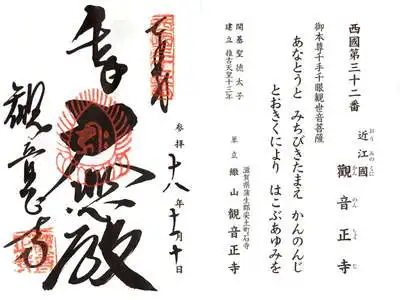 西國第三十二番
近江國 觀音正寺
おう みの くに
かん のん しょう じ
御本尊千手千眼觀世音菩薩
あなとうと みちびきたまえ かんのんじ
とおきくにより はこぶあゆみを
開基聖德太子
建立 推古天皇十三年
滋賀県蒲生郡安土町石寺
単立 繖山 観音正寺
奉
参拝 十八年十一月十日
大悲殿
観音正寺